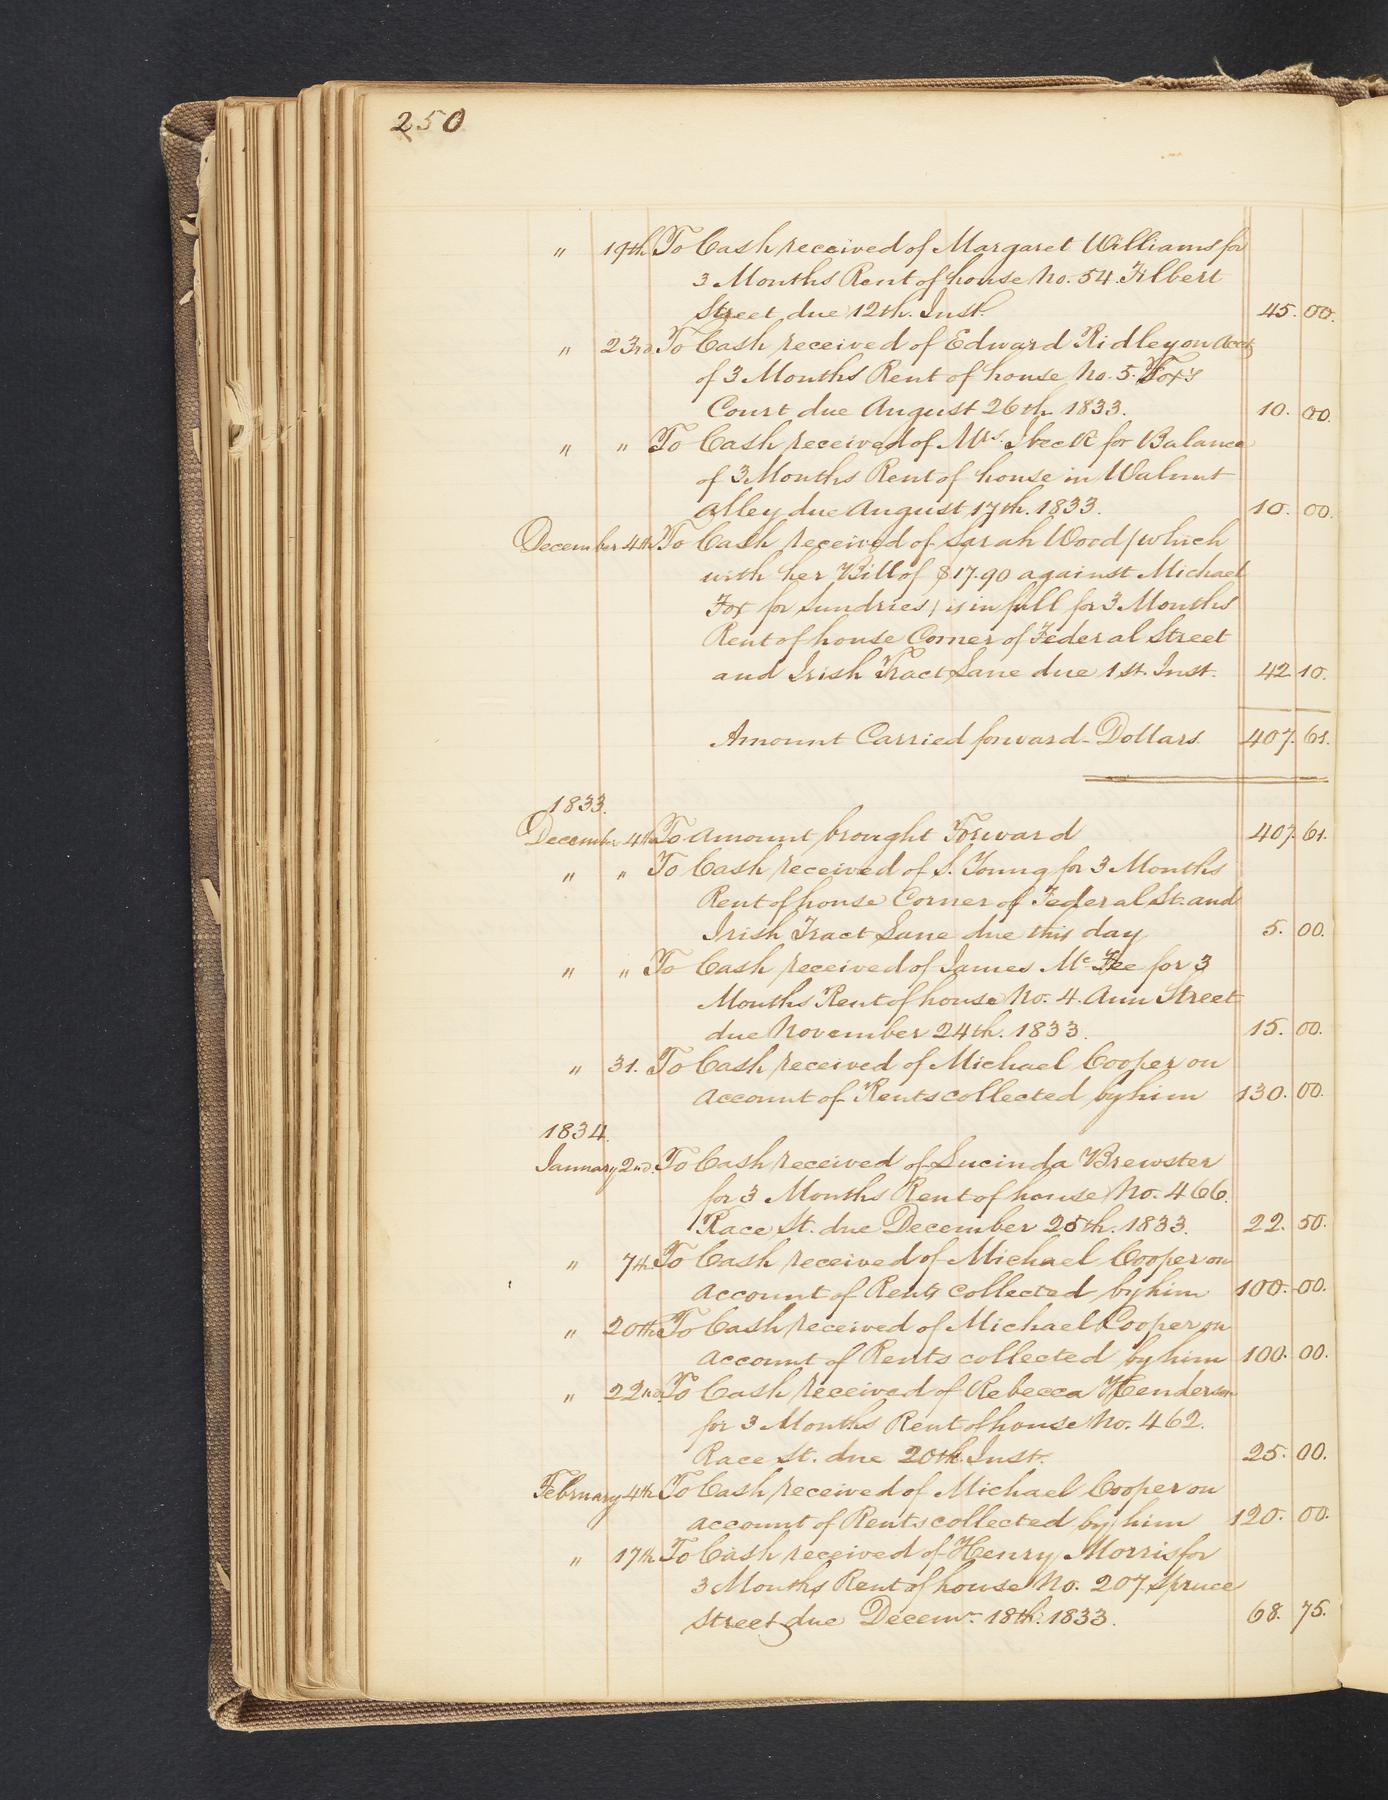 250
" 19th To Cash received of Margaret Williams for
3 Months Rent of house No. 54. Filbert
Street due 12th. Inst. 45. 00.
" 23rd. To Cash received of Edward Ridley on Acct.
of 3 Months Rent of house No. 5. Fox's
Court due August 26th. 1833. 10. 00.
" " To Cash received of Mrs. for Balance
of 3 Months Rent of house in Walnut
alley due August 17th. 1833. 10. 00.
December 4th To Cash received of Sarah Wood (which
with her Bill of $17.90 against Michael
Fox for Sundries) is in full for 3 Months
Rent of house Corner of Federal Street
and Irish Tract Lane due 1st. Inst. 42 10.
Amount Carried forward - Dollars 407. 61.
1833.
December 4th To amount brought Forward 407. 61.
" " To Cash received of S. Young for 3 Months
Rent of house Corner of Federal St. and
Irish Tract Lane due this day 5. 00.
" " To Cash received of James Mc.Fee for 3
Months Rent of house No. 4. Ann Street
due November 24th. 1833. 15. 00.
" 31. To Cash received of Michael Cooper on
account of Rents collected by him 130. 00.
1834.
January 2nd. To Cash received of Lucinda Brewster
for 3 Months Rent of house No. 466.
Race St. due December 25th. 1833. 22. 50.
" 7th. To Cash received of Michael Cooper on
account of Rents collected by him 100. 00.
" 20th To Cash received of Michael Cooper on
account of Rents collected by him 100. 00.
" 22nd. To Cash received of Rebecca Henderson
for 3 Months Rent of house No. 462.
Race St. due 20th. Inst. 25. 00.
February 4th To Cash received of Michael Cooper on
account of Rents collected by him 120. 00.
" 17th To Cash received of Henry Morris for
3 Months Rent of house No. 207. Spruce
Street due Decemr. 18th. 1833. 68. 75.